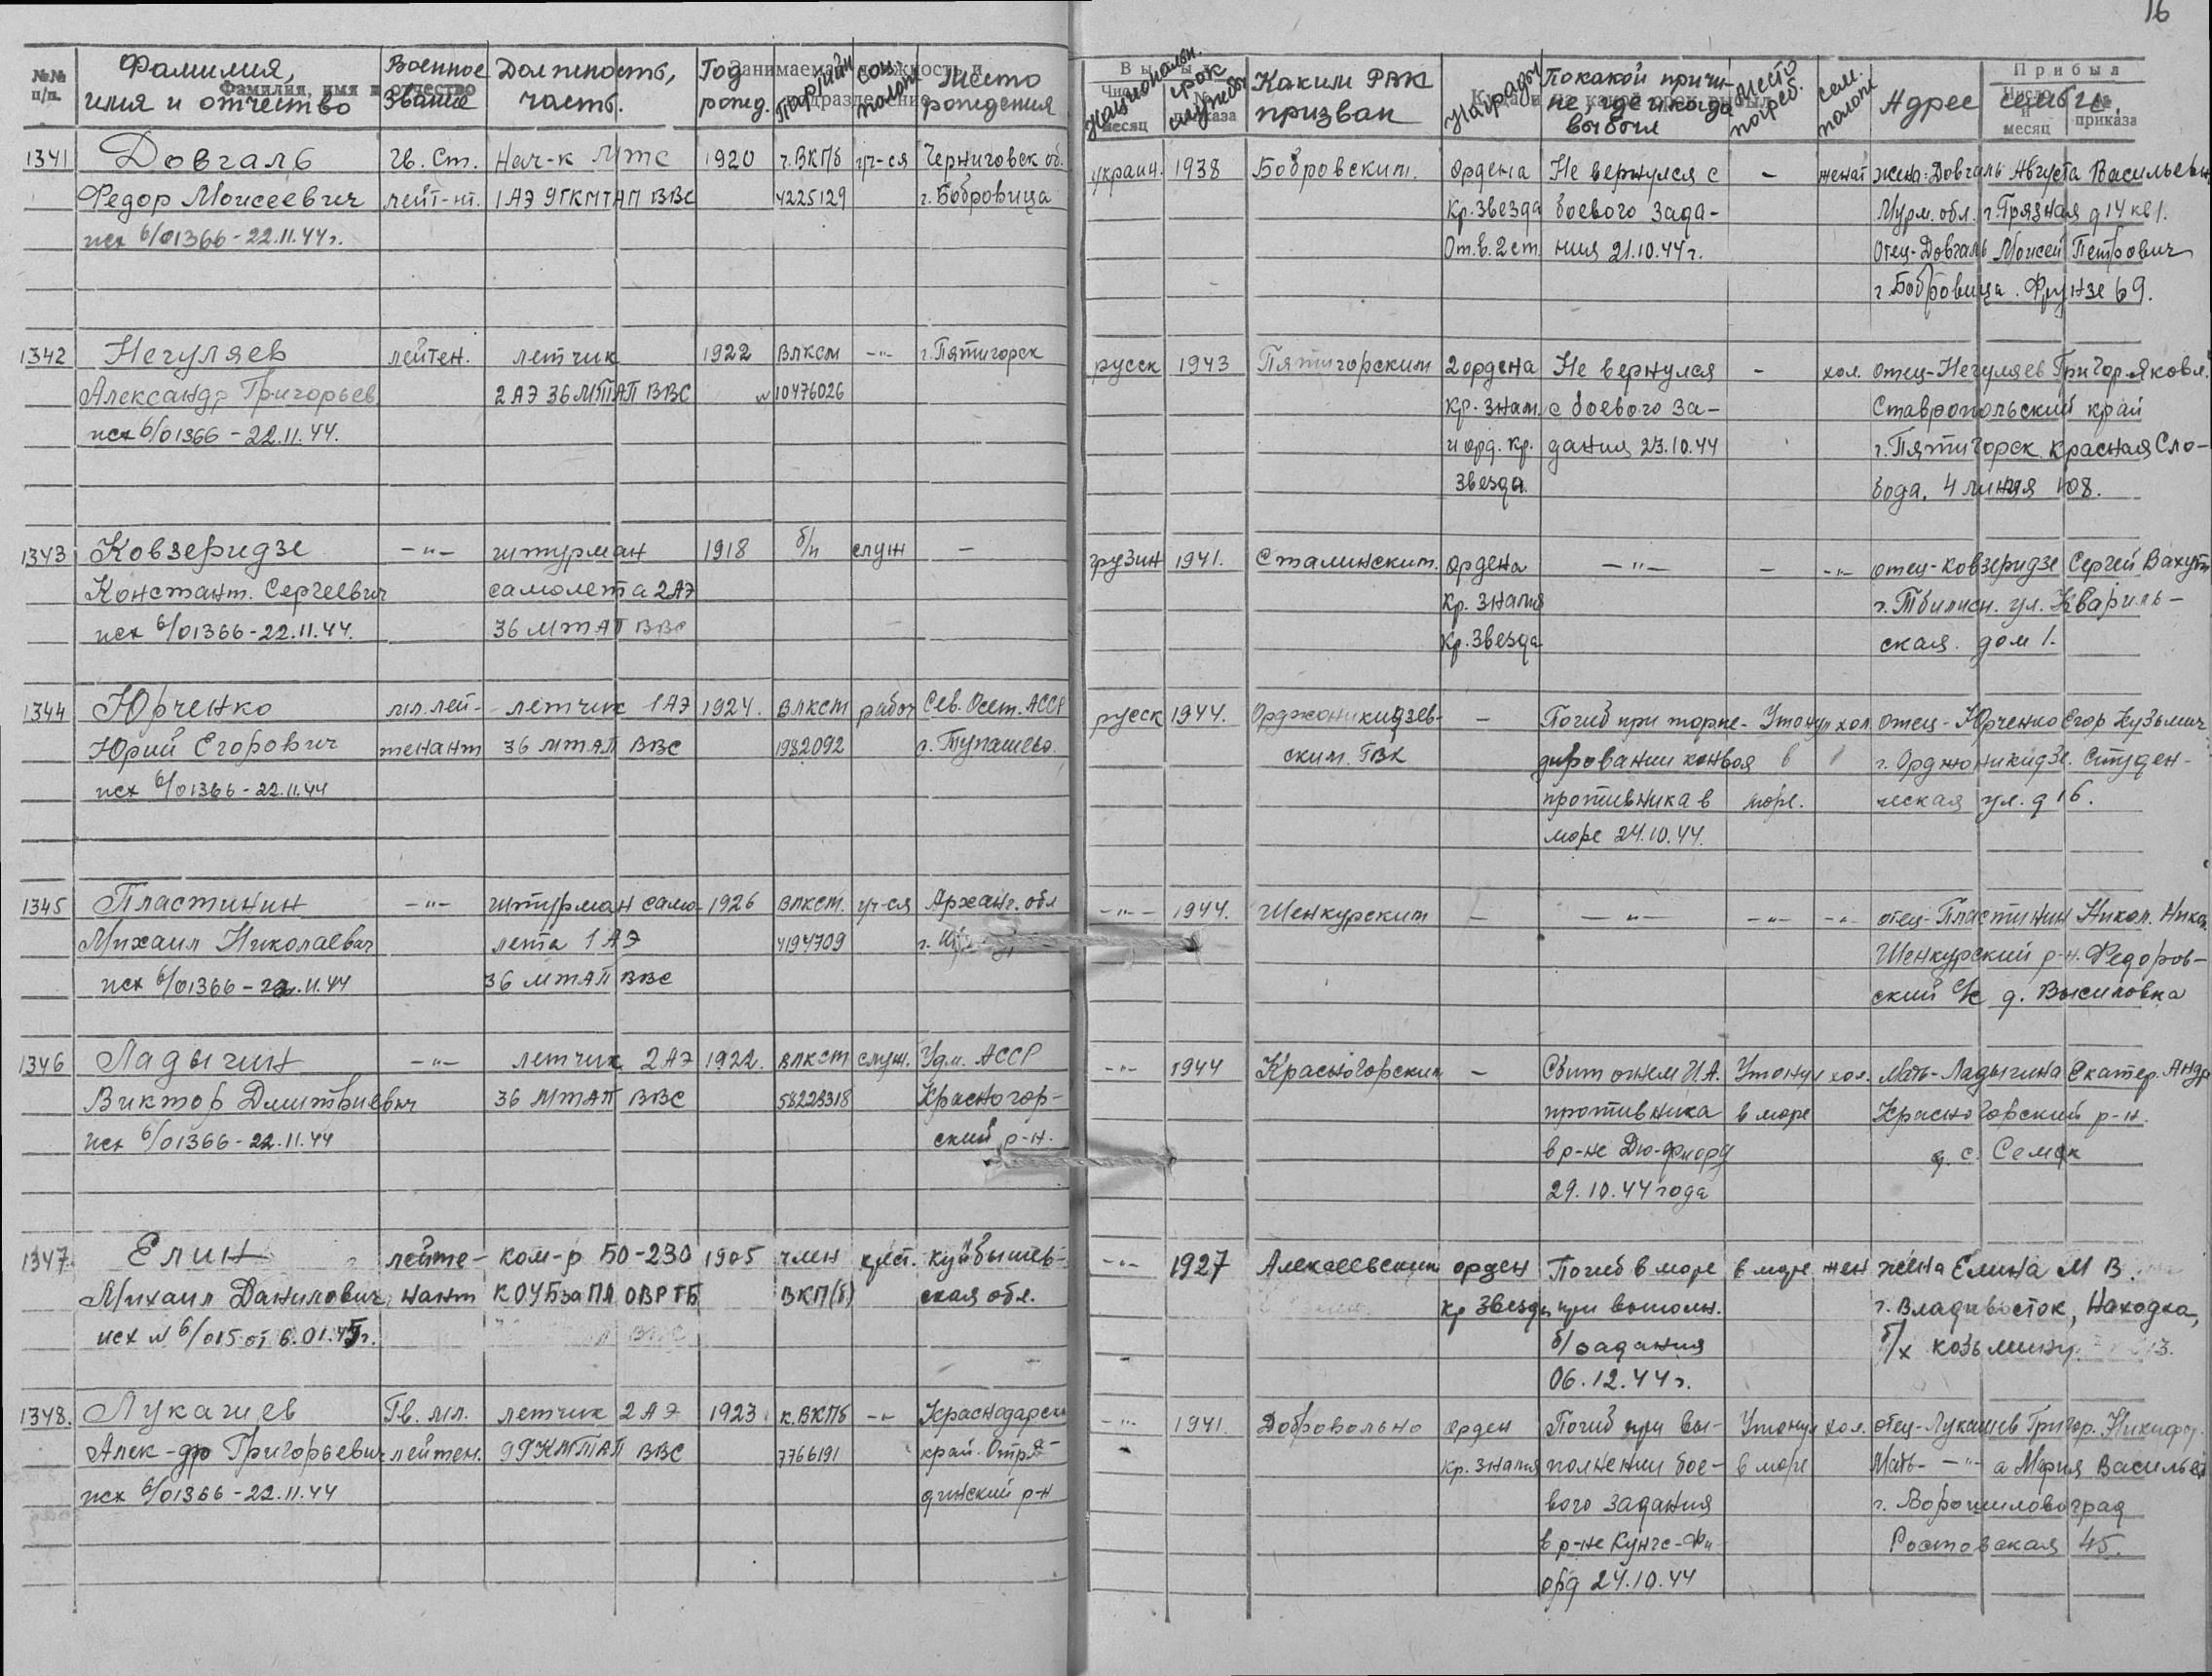 16
№№ п/п.
Фамилия, имя и отчество
Военное звание
Должность, часть.
Год рожд.
Партийн
соц. полож
Место рождения
Национальн.
срок службы
Каким РВК призван
Награды
По какой причи-
не, где и когда
выбыл
Место погреб.
сем. полож
Адрес семьи.
Фамилия, имя и отчество
Прибыл
Число и месяц
№ приказа
1341 Довгаль Гв. Ст. Нач-к МТС 1920 ч.ВКПб уч-ся Черниговск об.
Федор Моисеевич лейт-нт. 1 АЭ 9ГКМТАП ВВС 4225129 г. Бобровица
исх б/01366-22.11.44г.
украин. 1938 Бобровским. Ордена Не вернулся с - женат жена: Довгаль Августа Васильевн
Кр. Звезда боевого зада- Мурм. обл. г. Грязная д 14 кв 1.
От.в. 2 ст. ния 21.10.44г. Отец-Довгаль Моисей Петрович
г. Бобровица. Фрунзе 69.
1342 Негуляев лейтен. летчик 1922 ВЛКСМ -"- г. Пятигорск
Александр Григорьев 2 АЭ 36 МТАП ВВС №10476026
исх б/01366-22.11.44.
русск 1943 Пятигорским 2 ордена Не вернулся - хол. отец-Негуляев Григор. Яковл.
Кр. знам. с боевого за- Ставропольский край
и орд. Кр. дания 23.10.44 г. Пятигорск. Красная Сло-
Звезда. бода. 4 линия 108.
1343 Ковзеридзе -"- штурман 1918 б/п служ -
Константин. Сергеевич самолета 2 АЭ
исх б/01366-22.11.44. 36 МТАП ВВС
грузин 1941. Сталинским. Ордена -"- - -"- отец-Ковзеридзе Сергей Вахут
Кр. знамя г. Тбилиси. ул. Квариль-
Кр. Звезда ская. дом 1.
1344 Юрченко мл. лей- летчик 1 АЭ 1924. ВЛКСМ рабоч Сев. Осет. АССР
Юрий Егорович тенант 36 МТАП ВВС 1982092
исх б/01366-22.11.44
русск 1944. Орджоникидзев- - Погиб при торпе- Утонул хол. отец-Юрченко Егор Кузьмич
ским. ГВК дировании конвоя в г. Орджоникидзе. Студен-
противника в море. ческая ул. д 16.
море 24.10.44.
1345 Пластинин -"- штурман само- 1926 ВЛКСМ. уч-ся Арханг. обл
Михаил Николаевич лета 1 АЭ 4194709 г.
исх б/01366-22.11.44 36 МТАП ВВС
-"- 1944. Шенкурским - -"- -"- -"- отец-Пластинин Никол. Никол.
Шенкурский р-н. Федоров-
ский с/с д. Высиловка
1346 Ладыгин -"- летчик 2 АЭ 1922. ВЛКСМ служ. Удм. АССР
Виктор Дмитриевич 36 МТАП ВВС 58223318 Красногор-
исх б/01366-22.11.44 ский р-н.
-"- 1944 Красногорским - Сбит огнем И.А. Утонул хол. Мать-Ладыгина Екатер. Андр
противника в море Красногорский р-н.
в р-не Дю-фиорд с. Семак
29.10.44 года
1347. Елин лейте- ком-р БО-230 1905 член крест. Куйбышев-
Михаил Данилович нант КОУБ за ПЛ ОВР ТБ ВКП(б) ская обл.
исх № б/015 от 6.01.45г.
-"- 1927 Алексеевским орден Погиб в море в море жен жена Елина М В.
Кр Звезды при выполн. г. Владивосток, Находка,
б/задания б/х Козьмину.
06.12.44г.
1348. Лукашев Гв. мл. летчик 2 АЭ 1923 к. ВКПб -"- Краснодарск
Алек-др Григорьевич лейтен. 9ГКМТАП ВВС 7766191 край. Отра-
исх б/01366-22.11.44 динский р-н
-"- 1941. Добровольно Орден Погиб при вы- Утонул хол. отец-Лукашев Григор. Никифор.
Кр. знамя полнении бое- в море Мать- -"- а Мария Васильев
вого задания г. Ворошиловоград
в р-не Кунгс-Фи- Ростовская 45.
орд 24.10.44